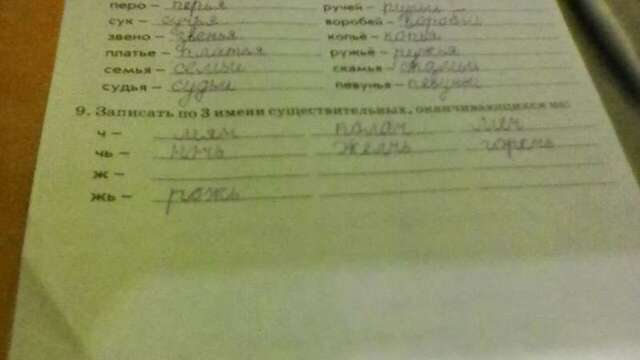 перо – перья ручей – ручьи
сук – сучья воробей – воробьи
звено – звенья копьё – копья
платье – платья ружьё – ружья
семья – семьи скамья – скамьи
судья – судьи певунья – певуньи
9. Записать по 3 имени существительных, оканчивающихся на:
ч – мяч палач меч
чь – ночь желчь горечь
ж –
жь – рожь